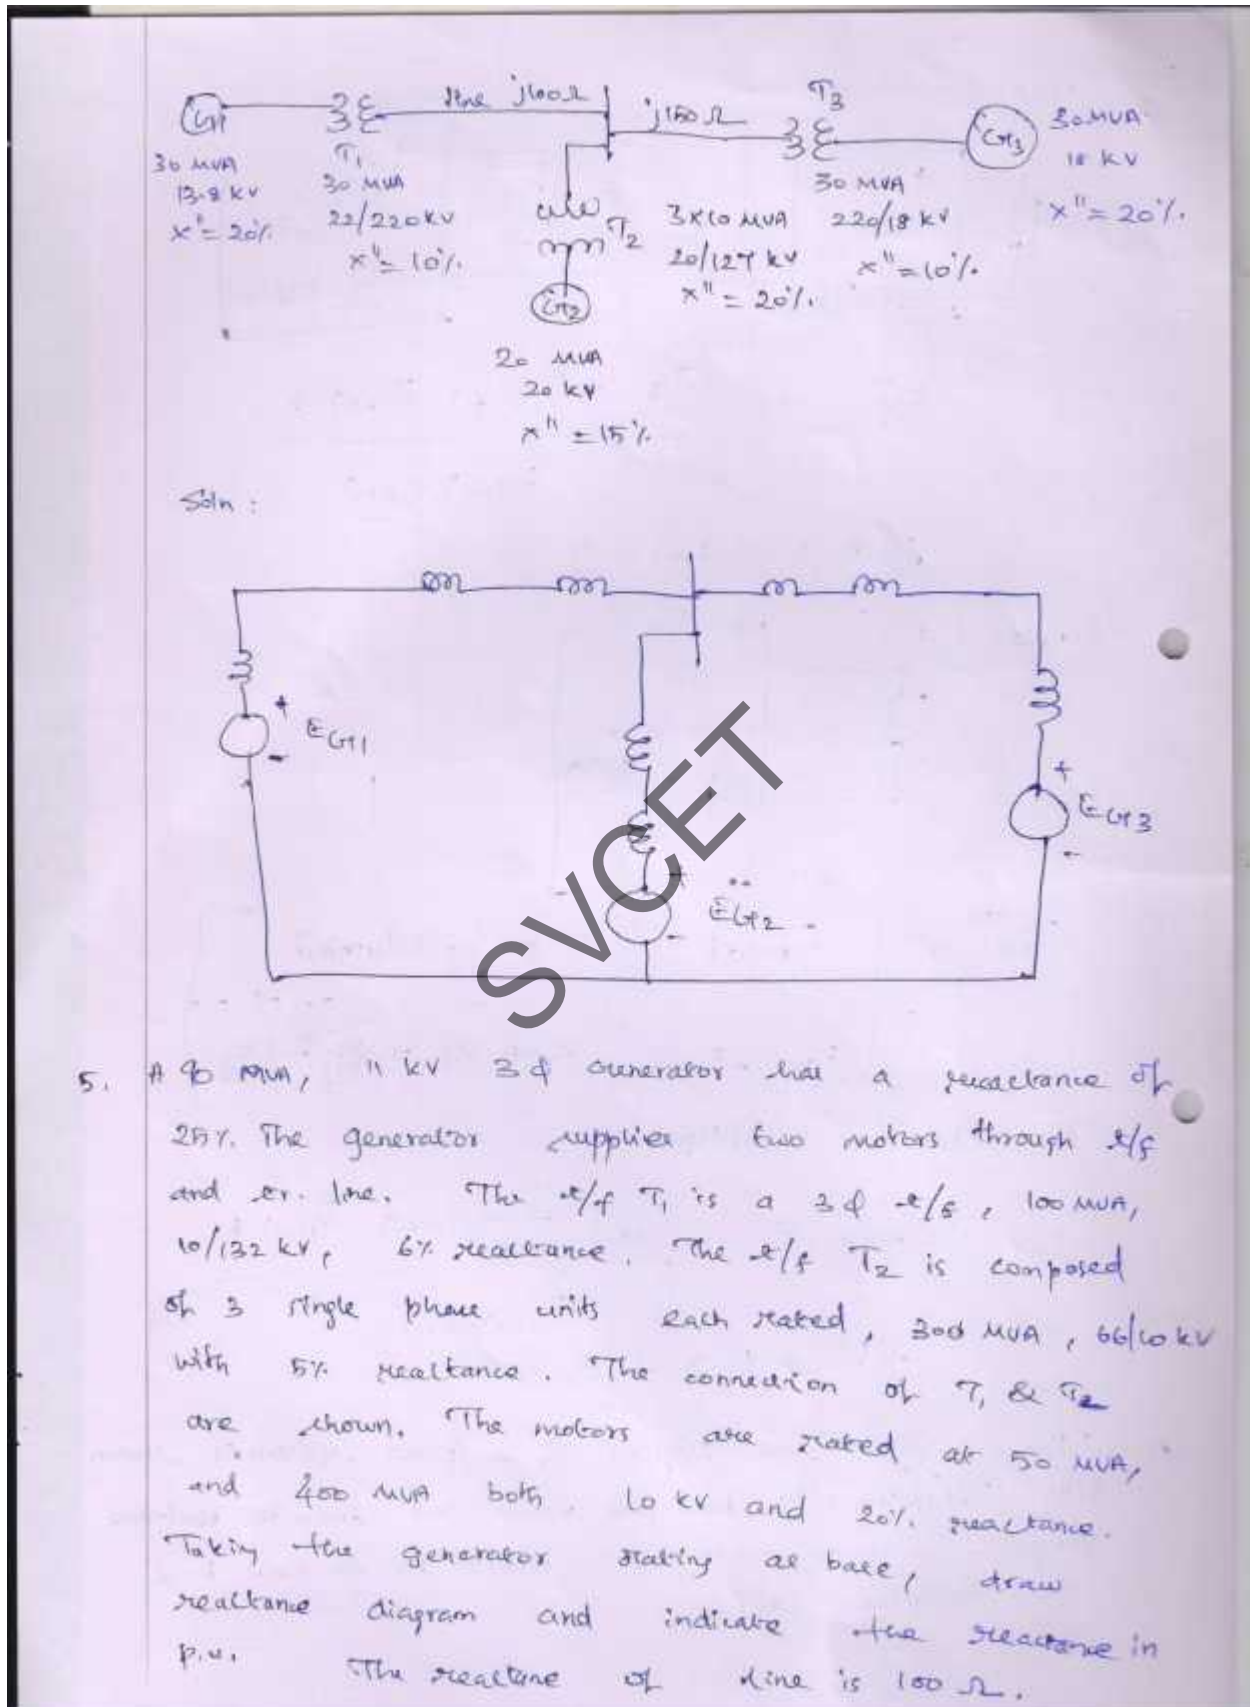 G1
T1
30 MVA
13.8 kV
x" = 20%
30 MVA
22/220 kV
x" = 10%
line j100Ω
j150Ω
T2
3x10 MVA
20/127 kV
x" = 20%
G2
20 MVA
20 kV
x" = 15%
T3
30 MVA
220/18 kV
x" = 10%
G3
30 MVA
18 kV
x" = 20%
Soln :
+
EG1
-
+
EG2
-
+
EG3
-
SVCET
5. A 90 MVA, 11 kV 3φ Generator has a reactance of
25%. The generator supplies two motors through t/f
and tr. line. The t/f T1 is a 3φ t/f, 100 MVA,
10/132 kV, 6% reactance. The t/f T2 is composed
of 3 single phase units each rated, 300 MVA, 66/10 kV
with 5% reactance. The connection of T1 & T2
are shown. The motors are rated at 50 MVA,
and 400 MVA both 10 kV and 20% reactance.
Taking the generator rating as base, draw
reactance diagram and indicate the reactance in
p.u. The reactane of line is 100 Ω.